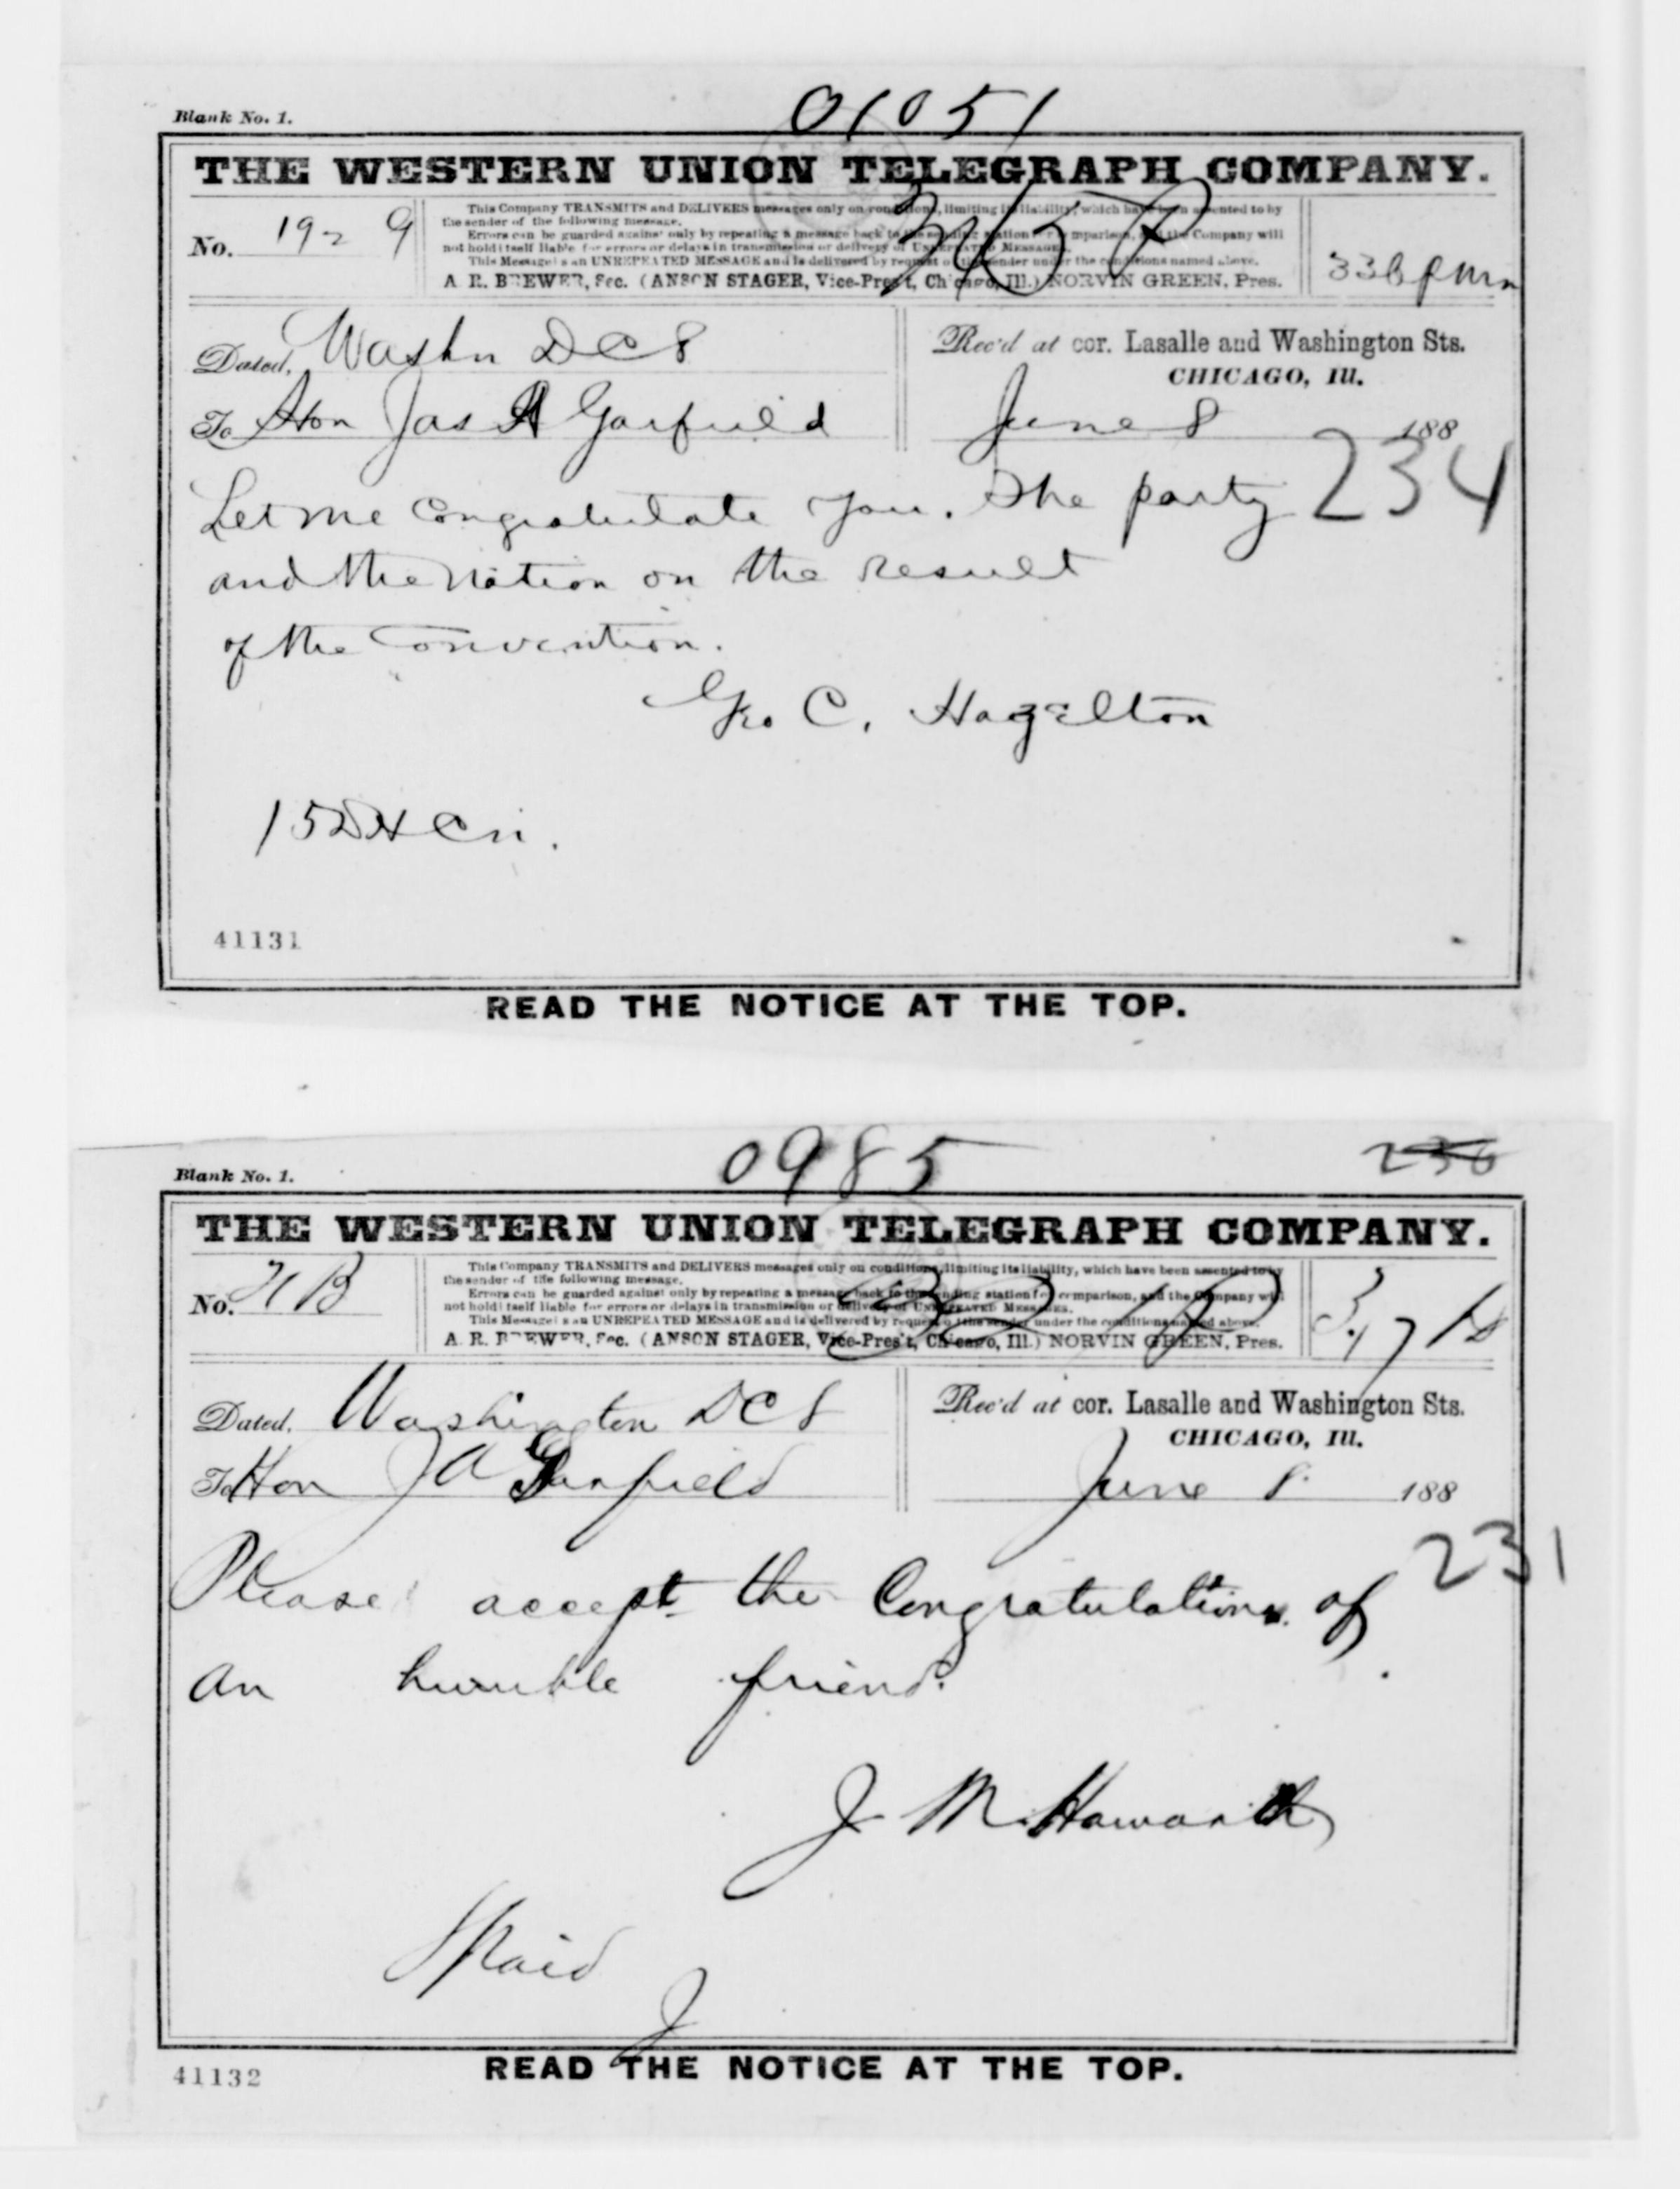 01051
Blank No. 1.
THE WESTERN UNION TELEGRAPH COMPANY.
No. 19-2 9
This Company TRANSMITS and DELIVERS messages only on conditions, limiting its liability, which have been assented to by
the sender of the following message.
Errors can be guarded against only by repeating a message back to the sending station for comparison, and the Company will
not hold itself liable for errors or delays in transmission or delivery of UNREPEATED MESSAGES.
This Message is an UNREPEATED MESSAGE and is delivered by request of the sender under the conditions named above.
A. R. BREWER, Sec. (ANSON STAGER, Vice-Pres't, Chicago, Ill.) NORVIN GREEN, Pres.
Dated, Washn DC 8
Rec'd at cor. Lasalle and Washington Sts.
CHICAGO, Ill.
To Hon Jas A Garfield
June 8 188
234
Let me Congratulate you. The party
and the Nation on the result
of the Convention.
Geo C. Hazelton
41131
READ THE NOTICE AT THE TOP.
0985
236
Blank No. 1.
THE WESTERN UNION TELEGRAPH COMPANY.
No.
This Company TRANSMITS and DELIVERS messages only on conditions, limiting its liability, which have been assented to by
the sender of the following message.
Errors can be guarded against only by repeating a message back to the sending station for comparison, and the Company will
not hold itself liable for errors or delays in transmission or delivery of UNREPEATED MESSAGES.
This Message is an UNREPEATED MESSAGE and is delivered by request of the sender under the conditions named above.
A. R. BREWER, Sec. (ANSON STAGER, Vice-Pres't, Chicago, Ill.) NORVIN GREEN, Pres.
Dated, Washington DC 8
Rec'd at cor. Lasalle and Washington Sts.
CHICAGO, Ill.
To Hon J A Garfield
June 8 188
231
Please accept the Congratulations of
an humble friend.
J M Haworth
Paid
41132
READ THE NOTICE AT THE TOP.